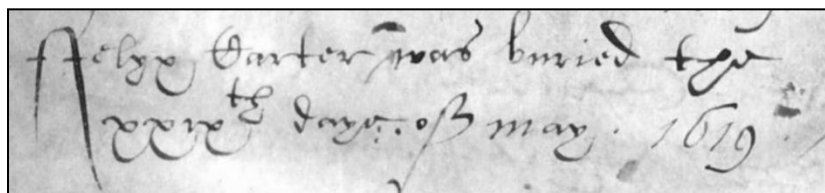 ffelyx Carter was buried the
xxixth daye of May. 1619